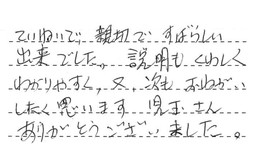 ていねいで、親切で、すばらしい
出来でした。説明もくわしく
わかりやすく、又、次もおねがい
したく思います 児玉さん
ありがとうございました。